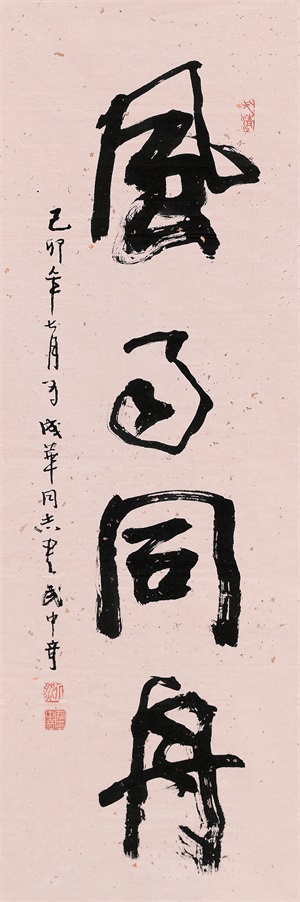 風雨同舟
己卯年七月为成華同志书武中奇